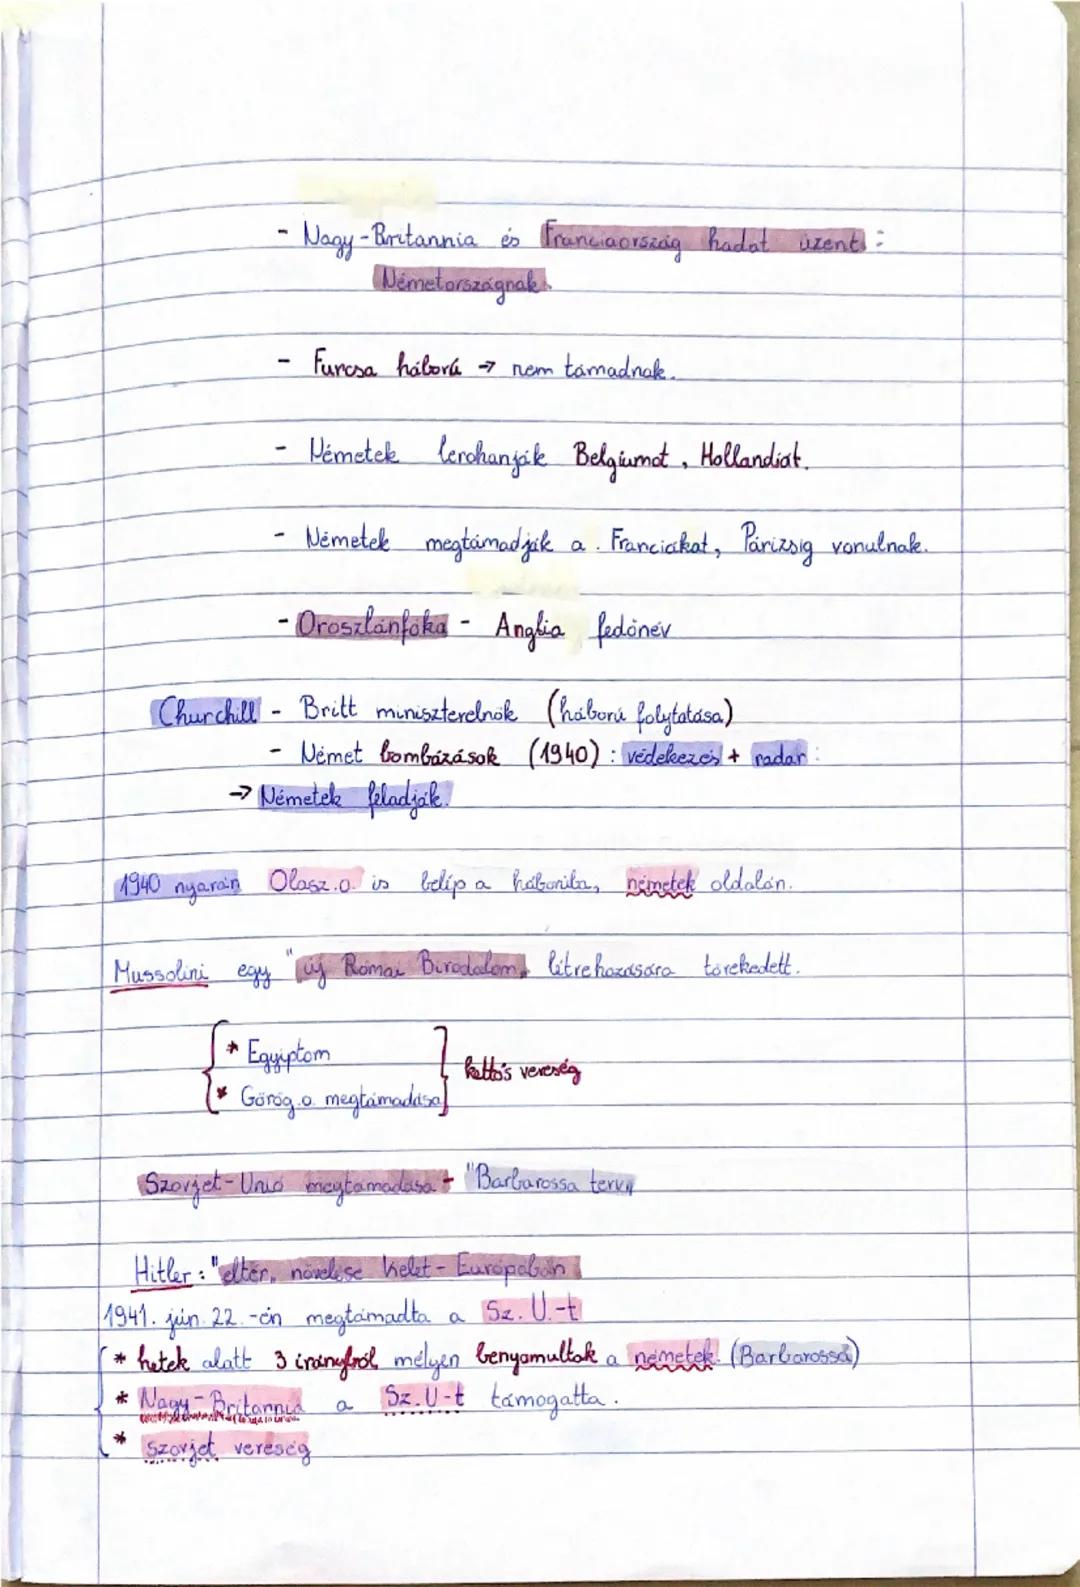 - Nagy-Britannia és Franciaország hadat üzent :
Németországnak.
- Furcsa háború → nem támadnak.
- Németek lerohanják Belgiumot, Hollandiát.
- Németek megtámadják a Franciákat, Párizsig vonulnak.
- Oroszlánfóka - Anglia fedőnév
Churchill - Britt miniszterelnök (háború folytatása)
- Német bombázások (1940) : védekezés + radar :
→ Németek feladják.
1940 nyarán Olasz.o. is belép a háborúba, németek oldalán.
Mussolini egy "új Római Birodalom" létrehozására törekedett.
* Egyiptom
* Görög.o. megtámadása
kettős vereség
Szovjet-Unió megtámadása - "Barbarossa terv"
Hitler : "éltér" növelése Kelet-Európában
1941. jún. 22.-én megtámadta a Sz. U.-t
* hetek alatt 3 irányból mélyen benyomultak a németek. (Barbarossa)
* Nagy-Britannia a Sz.U-t támogatta.
* szovjet vereség